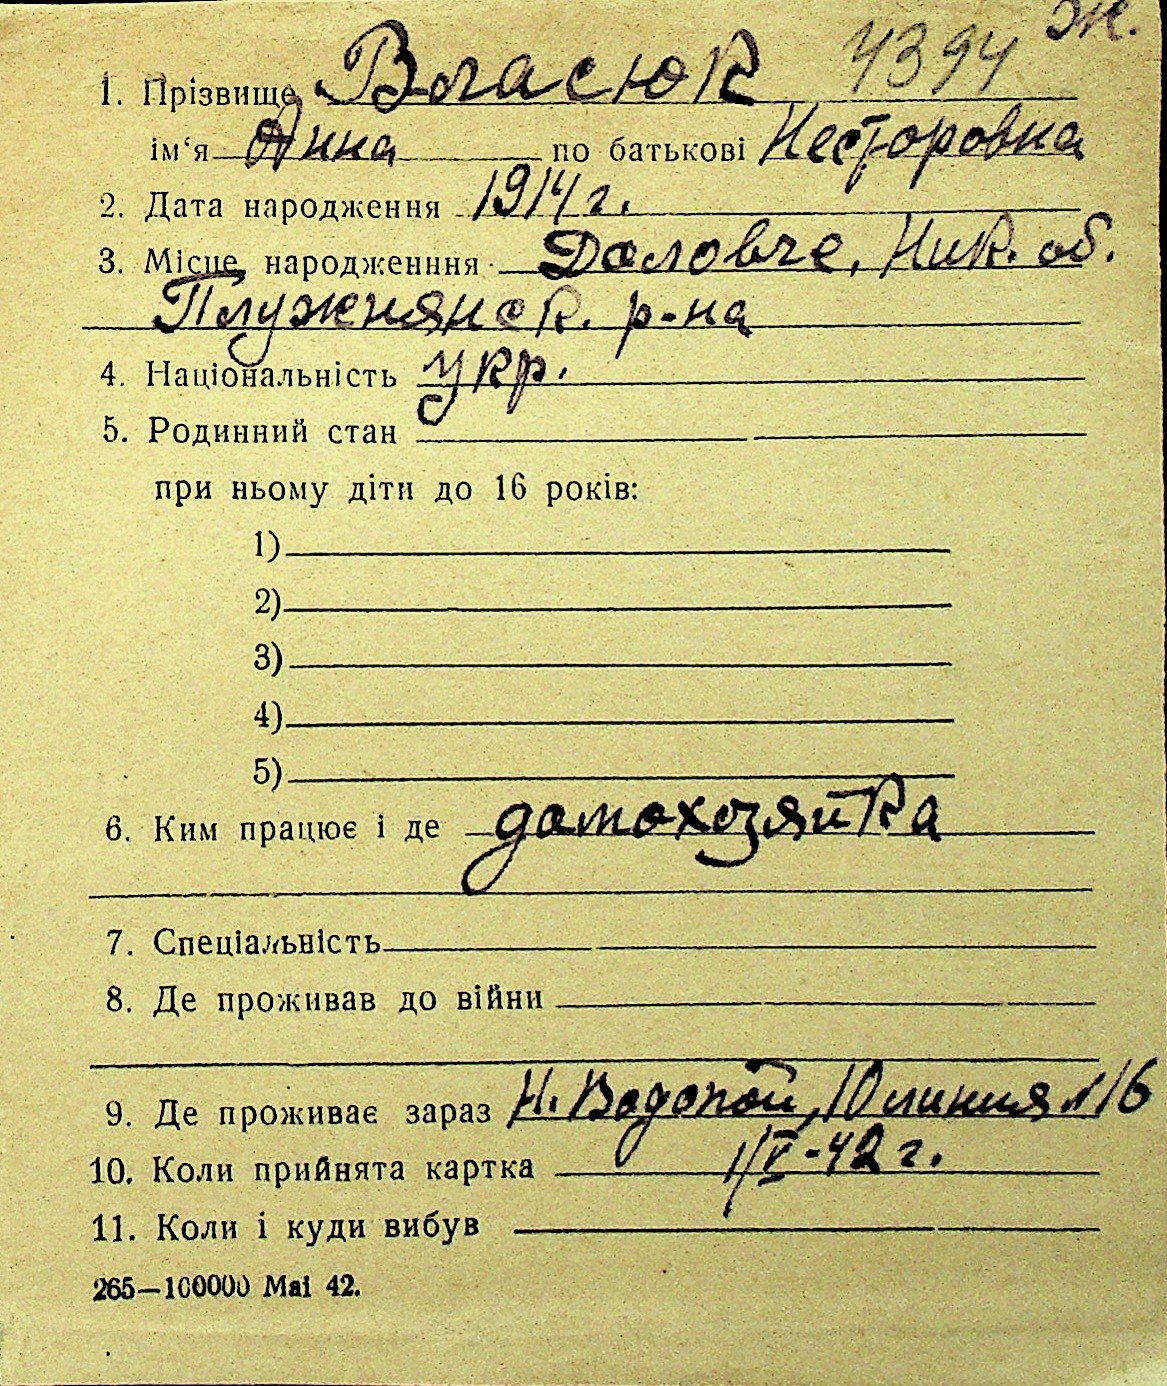 ж.
1. Прізвище Власюк 4394
ім‘я Анна по батькові Несторовна
2. Дата народження 1914 г.
3. Місце народженння Доловче, Ник. об.
Плужнянск. р-на
4. Національність укр.
5. Родинний стан
при ньому діти до 16 років:
1)
2)
3)
4)
5)
6. Ким працює і де домохозяйка
7. Спеціальність
8. Де проживав до війни
9. Де проживає зараз Н. Водопой, 10 линия № 16
10. Коли прийнята картка 1/V-42 г.
11. Коли і куди вибув
265—100000 Mai 42.